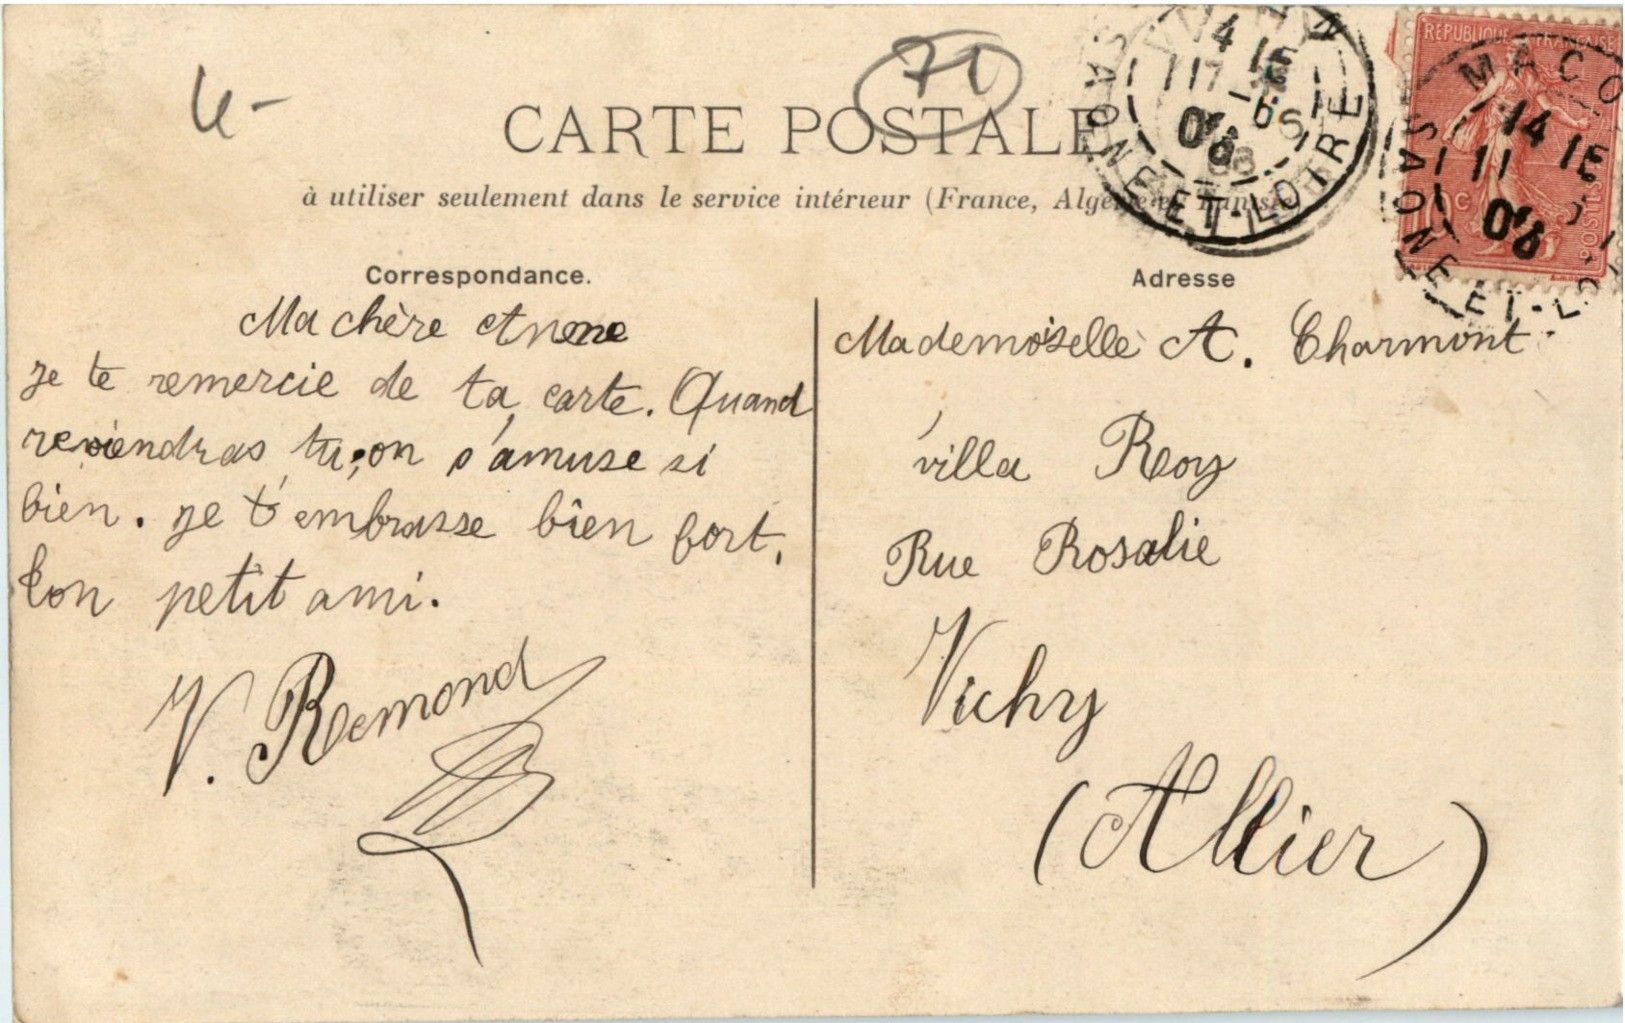 4-
71
CARTE POSTALE
à utiliser seulement dans le service intérieur (France, Algérie et Tunisie)
RÉPUBLIQUE FRANÇAISE
10c
POSTES
MACO
14 1E
11
06
SAONE-ET-L
14 1E
17
06
SAONE-ET-LOIRE
Correspondance.
Ma chère Anne
je te remercie de ta carte. Quand
reviendras tu; on s'amuse si
bien. je t'embrasse bien fort.
ton petit ami.
V. Remond
Adresse
Mademoiselle A. Charmont
villa Roy
Rue Rosalie
Vichy
(Allier)